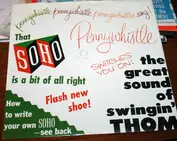 pennywhistle pennywhistle pennywhistle sing
That
SOHO
is a bit of all right
Flash new
shoe!
How
to write
your own SOHO
—see back
Pennywhistle
SWITCHES
YOU ON!
the
great
sound
of
swingin'
THOM